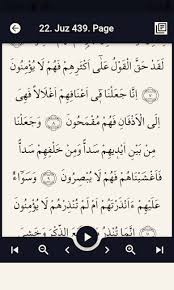 22. Juz 439. Page
لَقَدْ حَقَّ الْقَوْلُ عَلٰٓى اَكْثَرِهِمْ فَهُمْ لَا يُؤْمِنُونَ
﴿٧﴾ اِنَّا جَعَلْنَا فِٓي اَعْنَاقِهِمْ اَغْلَالًا فَهِيَ
اِلَى الْاَذْقَانِ فَهُمْ مُقْمَحُونَ ﴿٨﴾ وَجَعَلْنَا
مِنْ بَيْنِ اَيْدِيهِمْ سَدًّا وَمِنْ خَلْفِهِمْ سَدًّا
فَاَغْشَيْنَاهُمْ فَهُمْ لَا يُبْصِرُونَ ﴿٩﴾ وَسَوَٓاءٌ
عَلَيْهِمْ ءَاَنْذَرْتَهُمْ اَمْ لَمْ تُنْذِرْهُمْ لَا يُؤْمِنُونَ
﴿١٠﴾ اِنَّمَا تُنْذِرُ الذِّكْرَ وَخَشِيَ